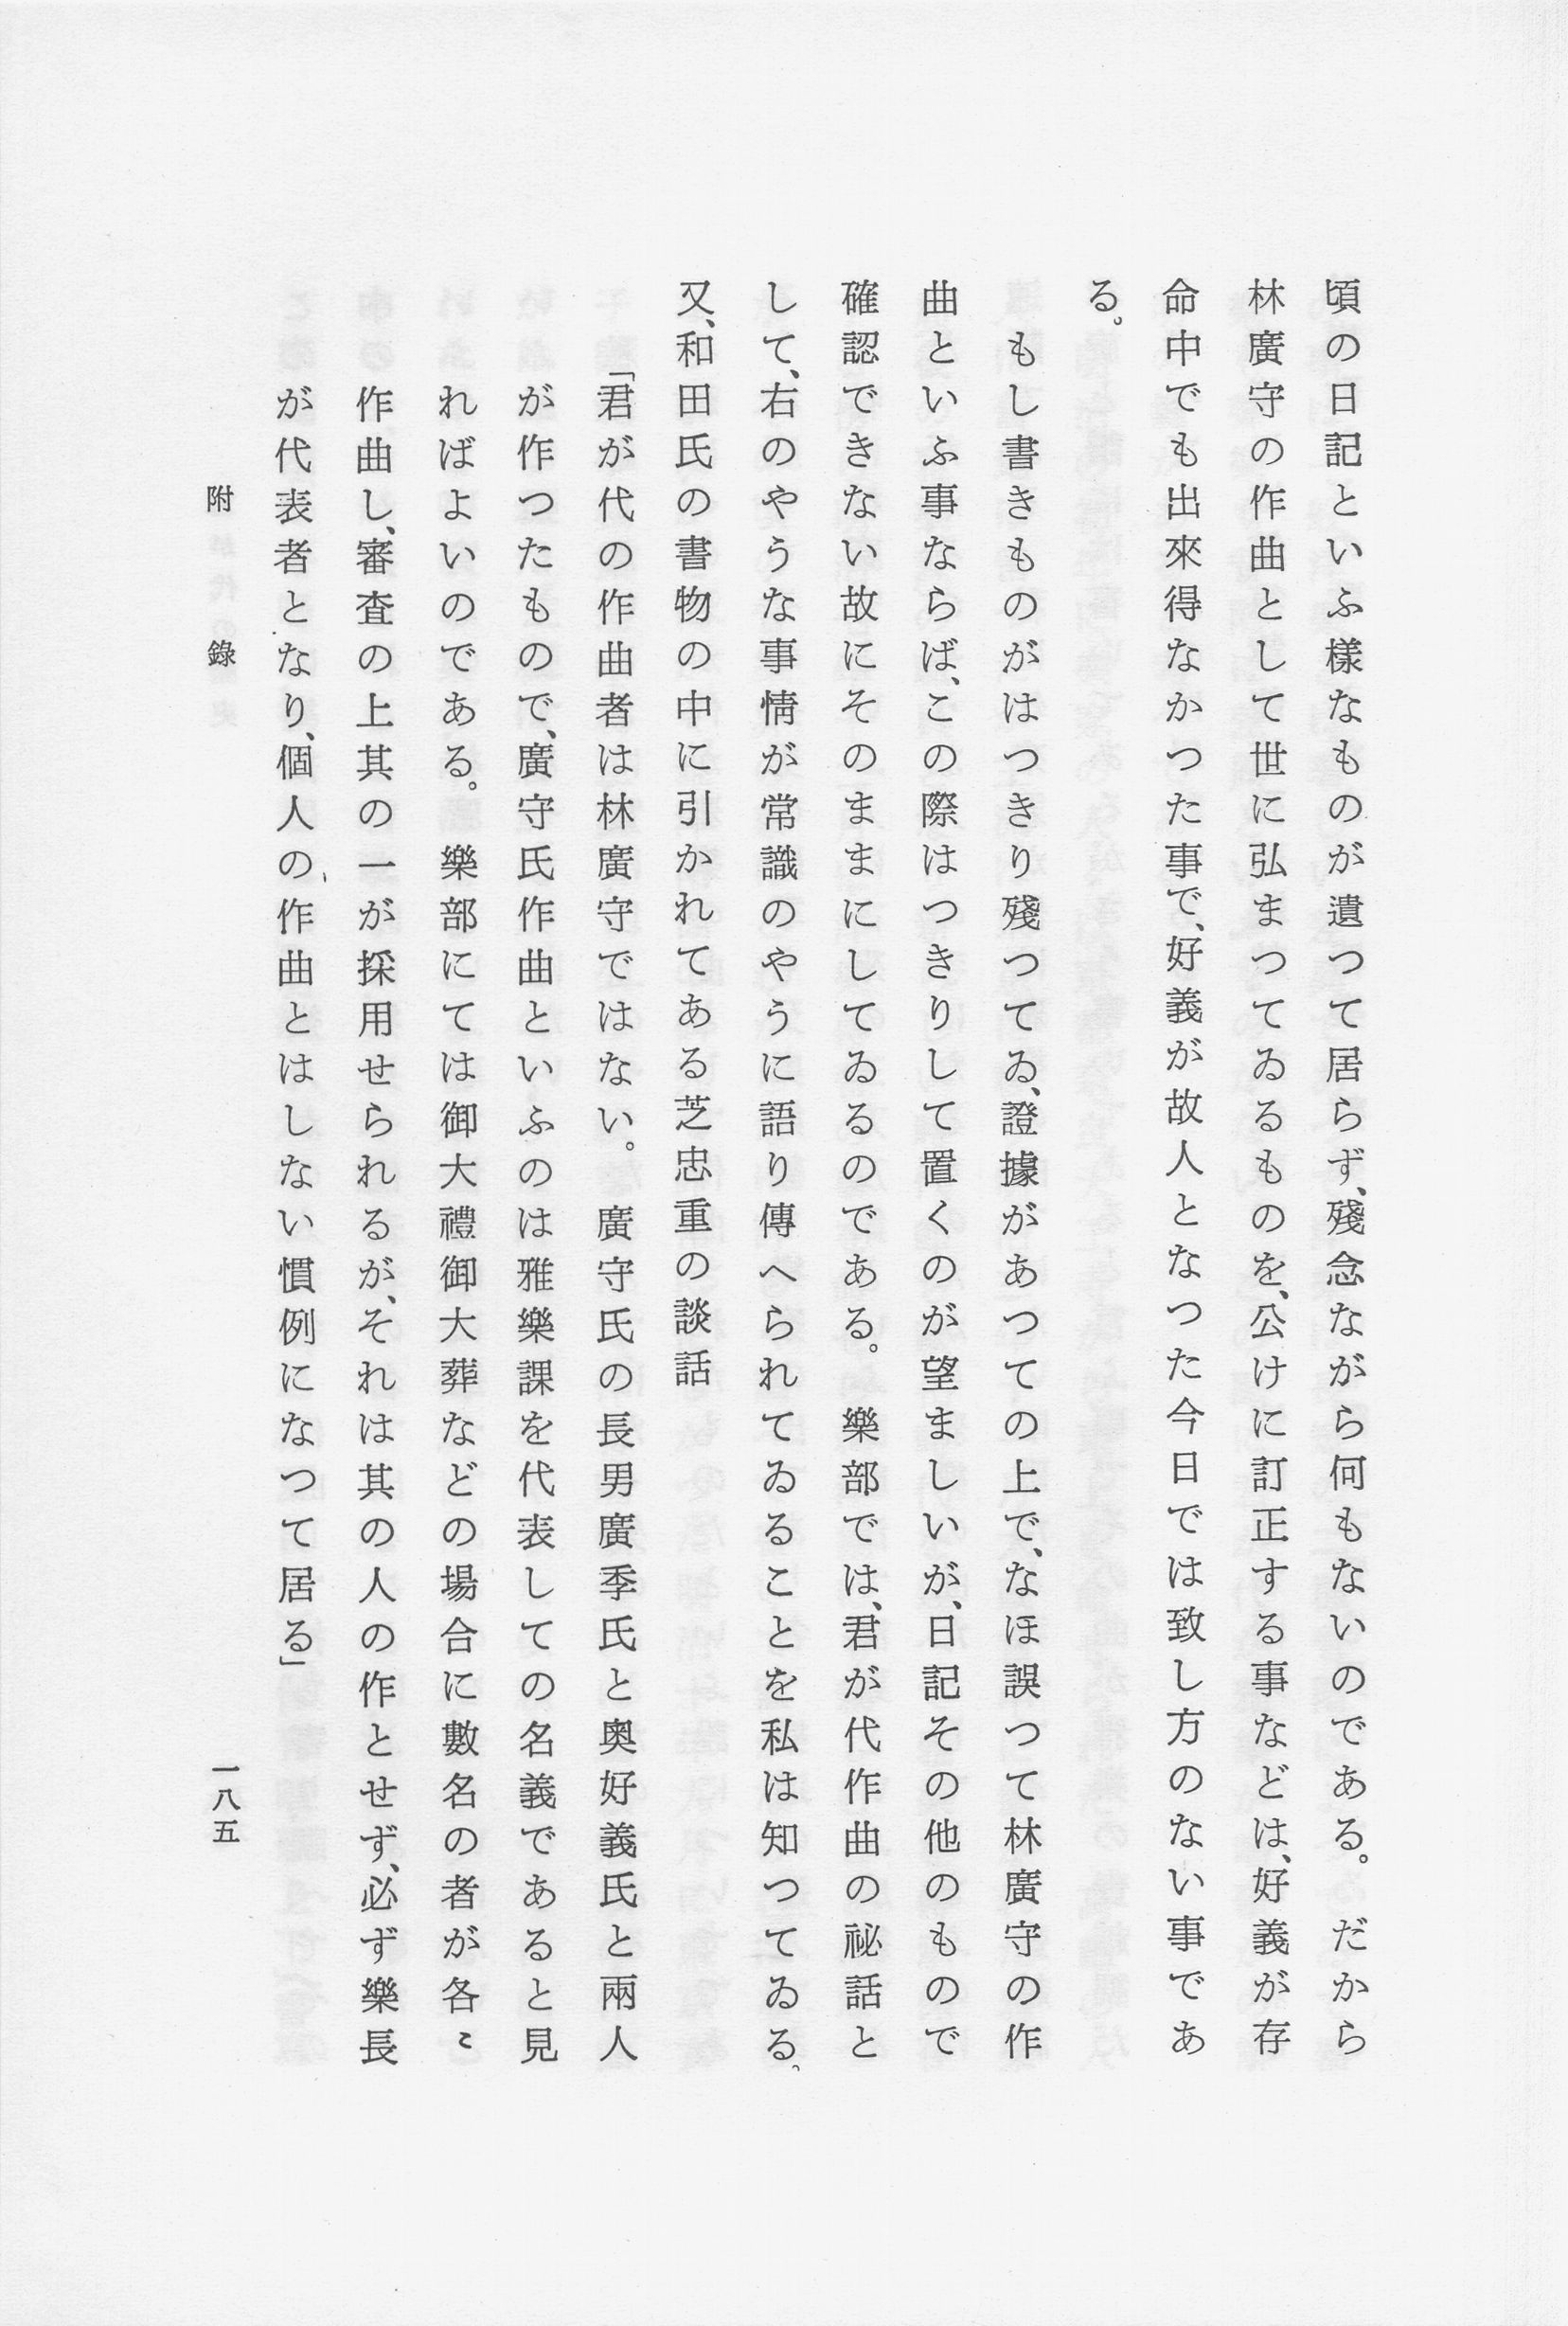 頃の日記といふ樣なものが遺つて居らず、殘念ながら何もないのである。だから
林廣守の作曲として世に弘まつてゐるものを、公けに訂正する事などは、好義が存
命中でも出來得なかつた事で、好義が故人となつた今日では致し方のない事であ
る。
もし書きものがはつきり殘つてゐ、證據があつての上で、なほ誤つて林廣守の作
曲といふ事ならば、この際はつきりして置くのが望ましいが、日記その他のもので
確認できない故にそのままにしてゐるのである。樂部では、君が代作曲の祕話と
して、右のやうな事情が常識のやうに語り傳へられてゐることを私は知つてゐる。
又、和田氏の書物の中に引かれてある芝忠重の談話
「君が代の作曲者は林廣守ではない。廣守氏の長男廣季氏と奧好義氏と兩人
が作つたもので、廣守氏作曲といふのは雅樂課を代表しての名義であると見
ればよいのである。樂部にては御大禮御大葬などの場合に數名の者が各〻
作曲し、審査の上其の一が採用せられるが、それは其の人の作とせず、必ず樂長
が代表者となり、個人の作曲とはしない慣例になつて居る」
附錄
一八五